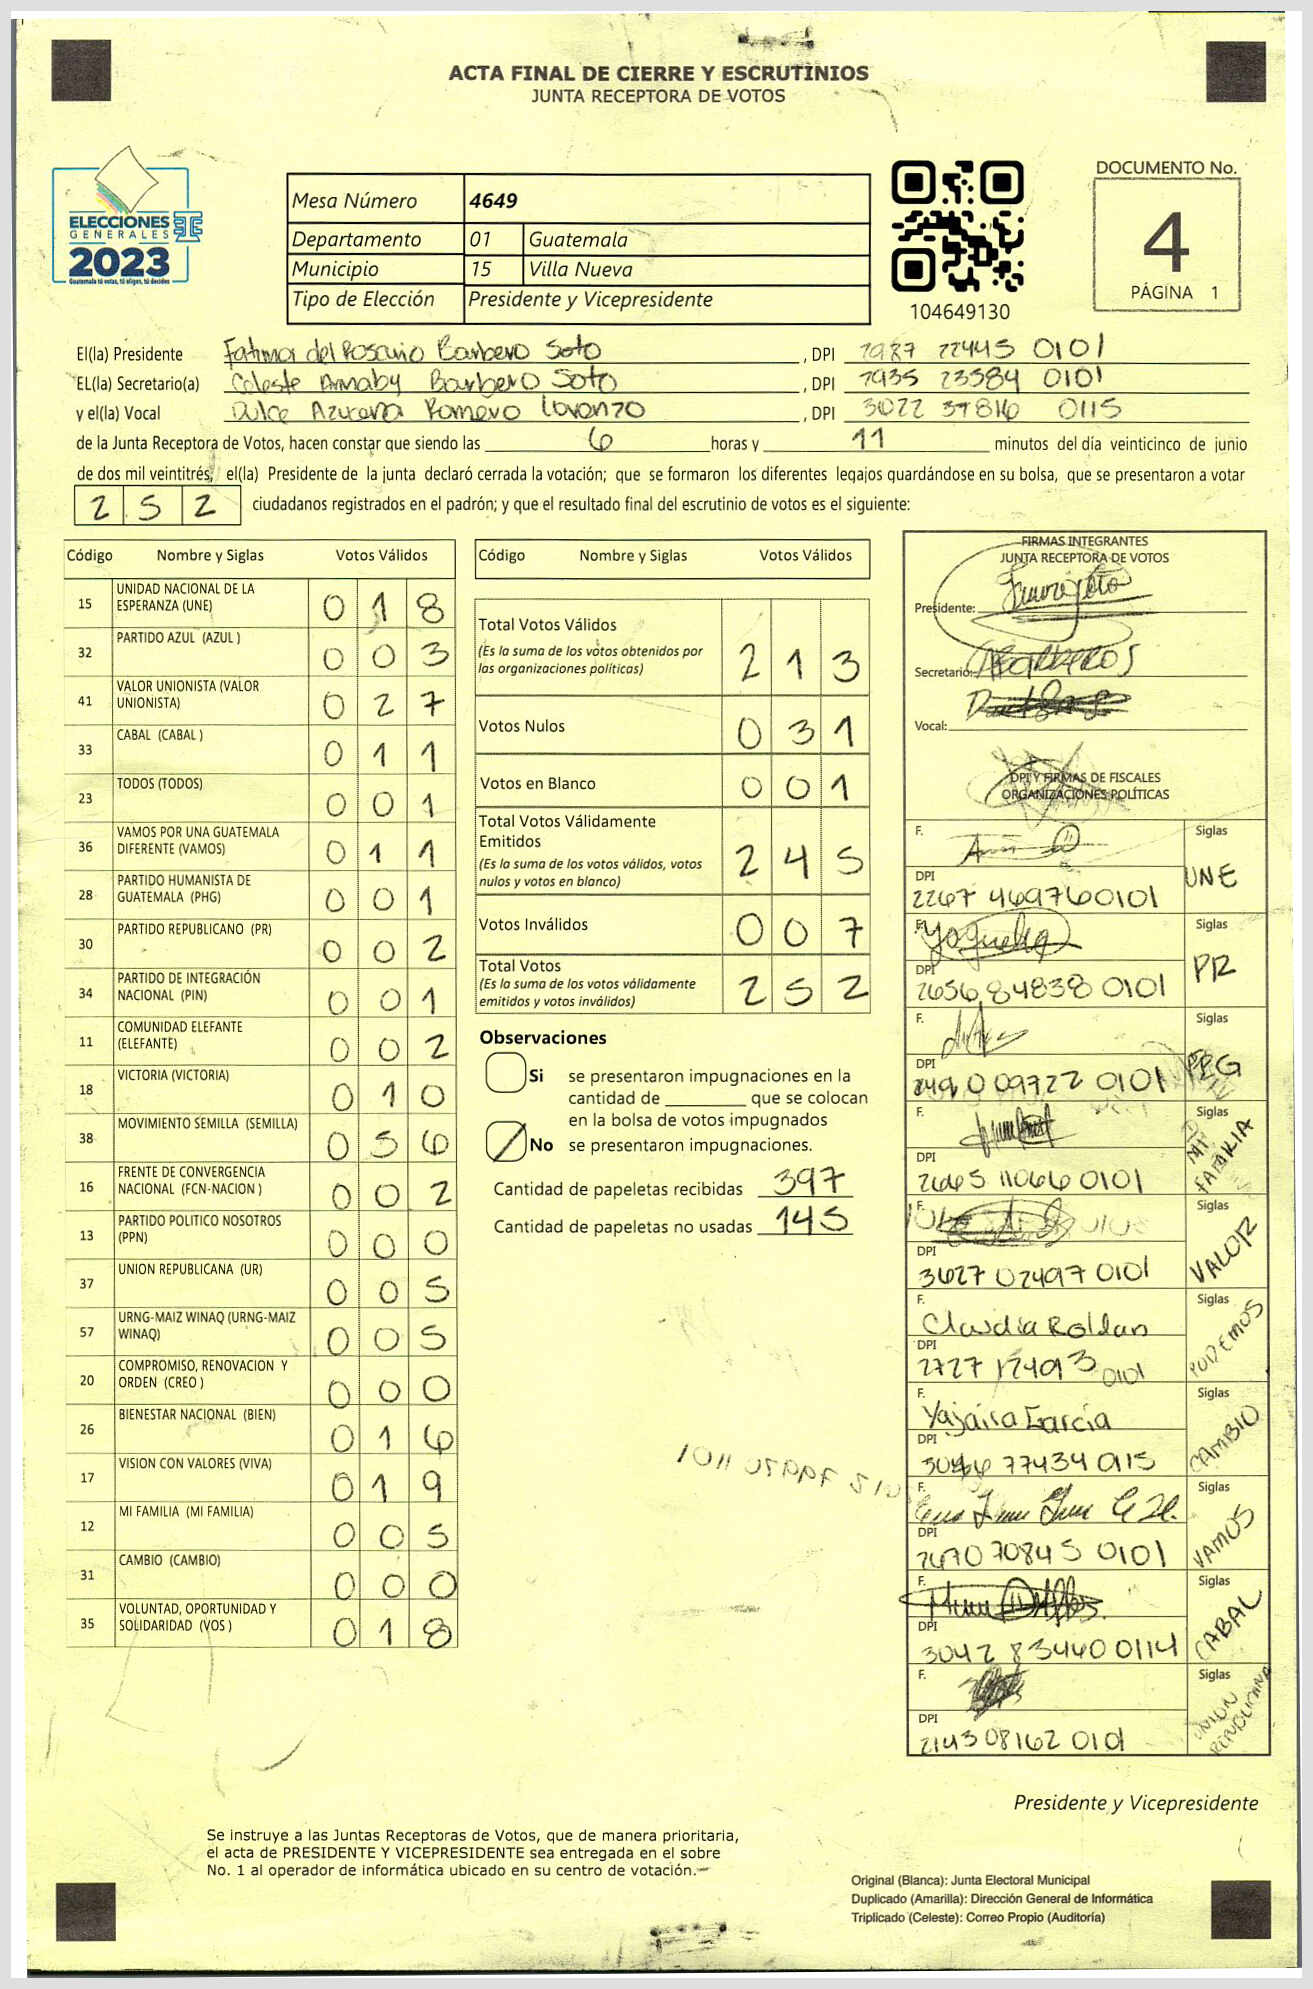 ACTA FINAL DE CIERRE Y ESCRUTINIOS
JUNTA RECEPTORA DE VOTOS
ELECCIONES
GENERALES
2023
Guatemala tú votas, tú eliges, tú decides
Mesa Número 4649
Departamento 01 Guatemala
Municipio 15 Villa Nueva
Tipo de Elección Presidente y Vicepresidente
104649130
DOCUMENTO No.
4
PÁGINA 1
El(la) Presidente Fatima del Rosario Barbero Soto, DPI 7987 22445 0101
EL(la) Secretario(a) Celeste Annaby Barbero Soto, DPI 7935 23584 0101
y el(la) Vocal Dulce Azucena Romero Lorenzo, DPI 3022 37816 0115
de la Junta Receptora de Votos, hacen constar que siendo las 6 horas y 11 minutos del día veinticinco de junio
de dos mil veintitrés, el(la) Presidente de la junta declaró cerrada la votación; que se formaron los diferentes legajos guardándose en su bolsa, que se presentaron a votar
252 ciudadanos registrados en el padrón; y que el resultado final del escrutinio de votos es el siguiente:
Código Nombre y Siglas Votos Válidos
15 UNIDAD NACIONAL DE LA ESPERANZA (UNE) 018
32 PARTIDO AZUL (AZUL ) 003
41 VALOR UNIONISTA (VALOR UNIONISTA) 027
33 CABAL (CABAL ) 011
23 TODOS (TODOS) 001
36 VAMOS POR UNA GUATEMALA DIFERENTE (VAMOS) 011
28 PARTIDO HUMANISTA DE GUATEMALA (PHG) 001
30 PARTIDO REPUBLICANO (PR) 002
34 PARTIDO DE INTEGRACIÓN NACIONAL (PIN) 001
11 COMUNIDAD ELEFANTE (ELEFANTE) 002
18 VICTORIA (VICTORIA) 010
38 MOVIMIENTO SEMILLA (SEMILLA) 056
16 FRENTE DE CONVERGENCIA NACIONAL (FCN-NACION ) 002
13 PARTIDO POLITICO NOSOTROS (PPN) 000
37 UNION REPUBLICANA (UR) 005
57 URNG-MAIZ WINAQ (URNG-MAIZ WINAQ) 005
20 COMPROMISO, RENOVACION Y ORDEN (CREO ) 000
26 BIENESTAR NACIONAL (BIEN) 016
17 VISION CON VALORES (VIVA) 019
12 MI FAMILIA (MI FAMILIA) 005
31 CAMBIO (CAMBIO) 000
35 VOLUNTAD, OPORTUNIDAD Y SOLIDARIDAD (VOS ) 018
Código Nombre y Siglas Votos Válidos
Total Votos Válidos 213
(Es la suma de los votos obtenidos por
las organizaciones políticas)
Votos Nulos 031
Votos en Blanco 001
Total Votos Válidamente
Emitidos 245
(Es la suma de los votos válidos, votos
nulos y votos en blanco)
Votos Inválidos 007
Total Votos 252
(Es la suma de los votos válidamente
emitidos y votos inválidos)
Observaciones
Si se presentaron impugnaciones en la
cantidad de que se colocan
en la bolsa de votos impugnados
No se presentaron impugnaciones.
Cantidad de papeletas recibidas 397
Cantidad de papeletas no usadas 145
FIRMAS INTEGRANTES
JUNTA RECEPTORA DE VOTOS
Presidente:
Secretario:
Vocal:
DPI Y FIRMAS DE FISCALES
ORGANIZACIONES POLÍTICAS
F. Siglas UNE
DPI 2267 469760101
F. Siglas PR
DPI 2656 84838 0101
F. Siglas
DPI 009722 0101
F. Siglas MI FAMILIA
DPI 2665 11066 0101
F. Siglas VALOR
DPI 3627 02497 0101
F. Claudia Roldan Siglas PODEMOS
DPI 2727 17493 0101
F. Yajaira García Siglas CAMBIO
DPI 77434 0115
F. Siglas VAMOS
DPI 2670 70845 0101
F. Siglas CABAL
DPI 3042 83440 0114
F. Siglas UNION
DPI 2143 08162 0101
Presidente y Vicepresidente
Se instruye a las Juntas Receptoras de Votos, que de manera prioritaria,
el acta de PRESIDENTE Y VICEPRESIDENTE sea entregada en el sobre
No. 1 al operador de informática ubicado en su centro de votación.
Original (Blanca): Junta Electoral Municipal
Duplicado (Amarilla): Dirección General de Informática
Triplicado (Celeste): Correo Propio (Auditoría)